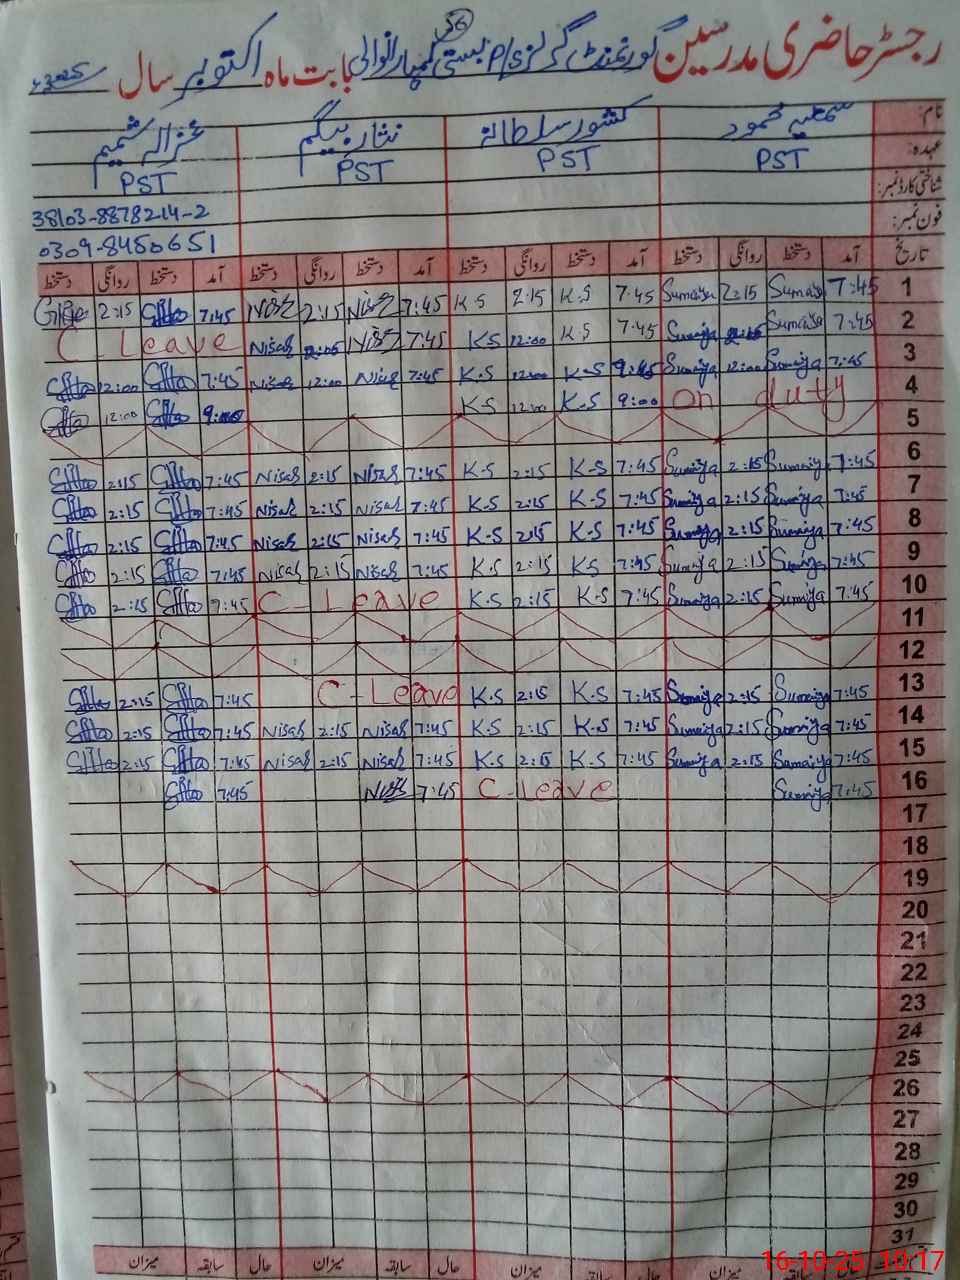 رجسٹر حاضری مدرسین گورنمنٹ گرلز P/S بستی کمہارانوالی بابت ماہ اکتوبر سال 2025ء
56
نام: سمعیہ محمود کشور سلطانہ نثار بیگم غزالہ شمیم
عہدہ: PST PST PST PST
شناختی کارڈ نمبر: 38103-8878214-2
فون نمبر: 0309-8450651
تاریخ آمد دستخط روانگی دستخط آمد دستخط روانگی دستخط آمد دستخط روانگی دستخط آمد دستخط روانگی دستخط
1 7:45 Sumaiya 2:15 Sumaiya 7:45 K.S 2:15 K.S 7:45 Nisar 2:15 Nisar 7:45 2:15
2 7:45 Sumaiya Sumaiya 7:45 K.S 12:00 K.S 7:45 Nisar Nisab C - Leave
3 7:45 Sumaiya 12:00 Sumaiya K.S 12:00 K.S 7:45 Nisab 12:00 Nisab 7:45 12:00
4 On duty 9:00 K.S 12:00 K.S 9:00 12:00
5
6 7:45 Sumaiya 2:15 Sumaiya 7:45 K.S 2:15 K.S 7:45 Nisab 2:15 Nisab 7:45 2:15
7 7:45 Sumaiya 2:15 Sumaiya 7:45 K.S 2:15 K.S 7:45 Nisab 2:15 Nisab 7:45 2:15
8 7:45 Sumaiya 2:15 Sumaiya 7:45 K.S 2:15 K.S 7:45 Nisab 2:15 Nisab 7:45 2:15
9 7:45 Sumaiya 2:15 Sumaiya 7:45 K.S 2:15 K.S 7:45 Nisab 2:15 Nisab 7:45 2:15
10 7:45 Sumaiya 2:15 Sumaiya 7:45 K.S 2:15 K.S C - Leave 7:45 2:15
11
12
13 7:45 Sumaiya 2:15 Sumaiya 7:45 K.S 2:15 K.S C - Leave 7:45 2:15
14 7:45 Sumaiya 2:15 Sumaiya 7:45 K.S 2:15 K.S 7:45 Nisab 2:15 Nisab 7:45 2:15
15 7:45 Samaiya 2:15 Sumaiya 7:45 K.S 2:15 K.S 7:45 Nisab 2:15 Nisab 7:45 2:15
16 7:45 Sumaiya C - Leave 7:45 Nisab 7:45
17
18
19
20
21
22
23
24
25
26
27
28
29
30
31
حال سابقہ میزان حال سابقہ میزان
16-10-25 10:17